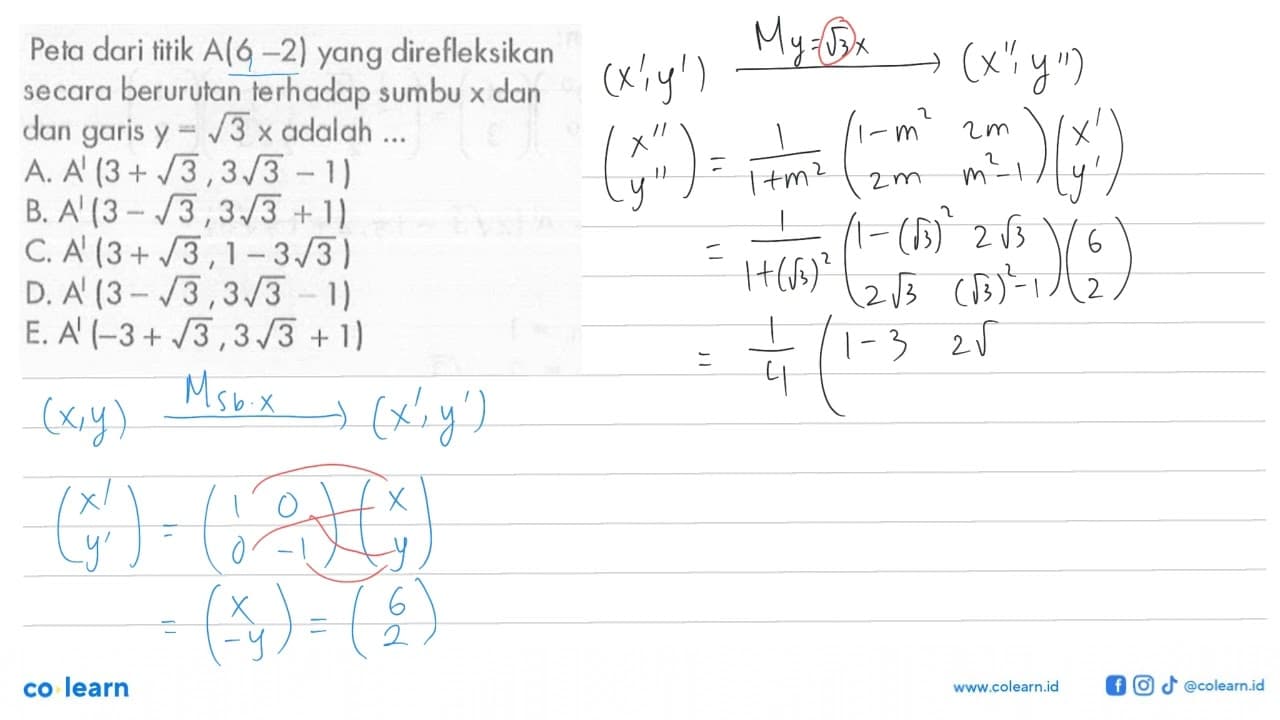 Peta dari titik A(6, −2) yang direfleksikan
secara berurutan terhadap sumbu x dan
dan garis y = √3 x adalah ...
A. A' (3 + √3 , 3√3 − 1)
B. A' (3 − √3 , 3√3 + 1)
C. A' (3 + √3 , 1 − 3√3 )
D. A' (3 − √3 , 3√3 − 1)
E. A' (−3 + √3 , 3√3 + 1)
(x,y) M sb.x → (x', y')
(x' y') = (1 0 0 −1) (x y)
= (x −y) = (6 2)
(x', y') M y=√3x → (x'', y'')
(x'' y'') = 1/1+m² (1−m² 2m 2m m²−1) (x' y')
= 1/1+(√3)² (1−(√3)² 2√3 2√3 (√3)²−1) (6 2)
= 1/4 (1−3 2√
co learn
www.colearn.id
@colearn.id